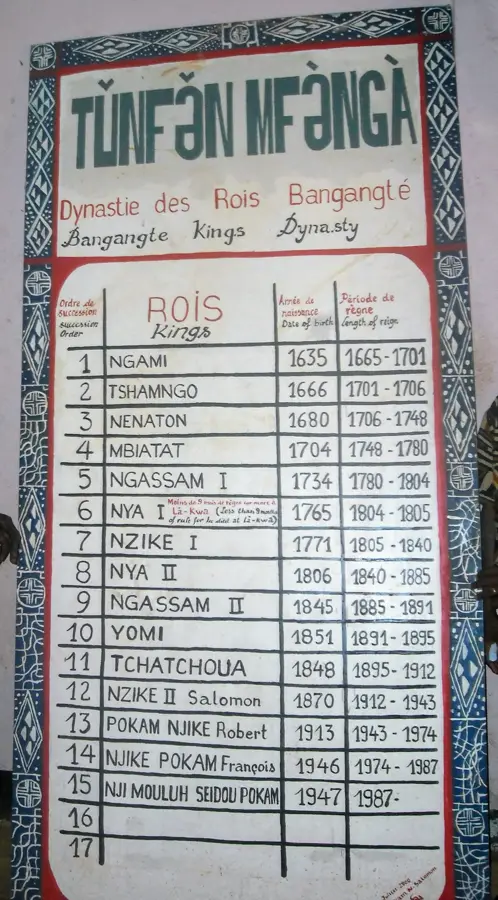 TǓNFƏ̌N MFƏ̀NGÀ
Dynastie des Rois Bangangté
Bangangte Kings Dynasty
Ordre de succession
succession Order
ROIS
Kings
Année de naissance
Date of birth
Période de règne
Length of reign
1 NGAMI 1635 1665-1701
2 TSHAMNGO 1666 1701-1706
3 NENATON 1680 1706-1748
4 MBIATAT 1704 1748-1780
5 NGASSAM I 1734 1780-1804
6 NYA I Moins de 9 mois de règne car mort à Là-Kwa (Less than 9 months of rule for he died at Là-kwa) 1765 1804-1805
7 NZIKE I 1771 1805-1840
8 NYA II 1806 1840-1885
9 NGASSAM II 1845 1885-1891
10 YOMI 1851 1891-1895
11 TCHATCHOUA 1848 1895-1912
12 NZIKE II Salomon 1870 1912-1943
13 POKAM NJIKE Robert 1913 1943-1974
14 NJIKE POKAM François 1946 1974-1987
15 NJI MOULUH SEIDOU POKAM 1947 1987-
16
17
Salomon